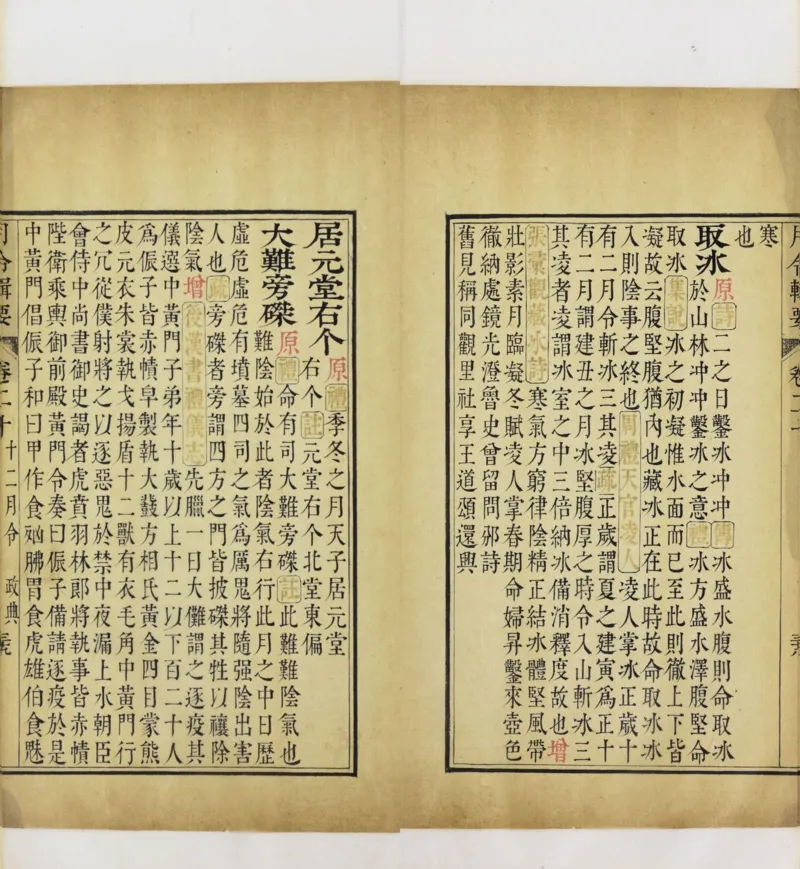 寒
也
取冰 原詩二之日鑿冰冲冲傳冰盛水腹則命取冰
於山林冲冲鑿冰之意禮冰方盛水澤腹堅命
取冰集說冰之初凝惟水面而已至此則徹上下皆
凝故云腹堅腹猶內也藏冰正在此時故命取冰冰
入則陰事之終也周禮天官凌人凌人掌冰正歲十
有二月令斬冰三其凌疏正歲謂夏之建寅為正十
有二月謂建丑之月冰堅腹厚之時令入山斬冰三
其凌者凌謂冰室之中三倍納冰備消釋度故也增
寒氣方窮律陰精正結冰體堅風帶
壯影素月臨凝冬賦凌人掌春期命婦昇鑿來壺色
徹納處鏡光澄魯史曾留問邠詩
舊見稱同觀里社享王道頌還興
居元堂右个 原禮季冬之月天子居元堂
右个註元堂右个北堂東偏
大難旁磔 原禮命有司大難旁磔註此難難陰氣也
難陰始於此者陰氣右行此月之中日歷
虛危虛危有墳墓四司之氣爲厲鬼將隨强陰出害
人也疏旁磔者旁謂四方之門皆披磔其牲以禳除
陰氣增後漢書禮儀志先臘一日大儺謂之逐疫其
儀選中黃門子弟年十歲以上十二以下百二十人
爲侲子皆赤幘皁製執大鼗方相氏黃金四目蒙熊
皮元衣朱裳執戈揚盾十二獸有衣毛角中黃門行
之冗從僕射將之以逐惡鬼於禁中夜漏上水朝臣
會侍中尚書御史謁者虎賁羽林郎將執事皆赤幘
陛衛乘輿御前殿黃門令奏曰侲子備請逐疫於是
中黃門倡侲子和曰甲作食𣧑胇胃食虎雄伯食魅
月令輯要 卷二十 十二月令 政典